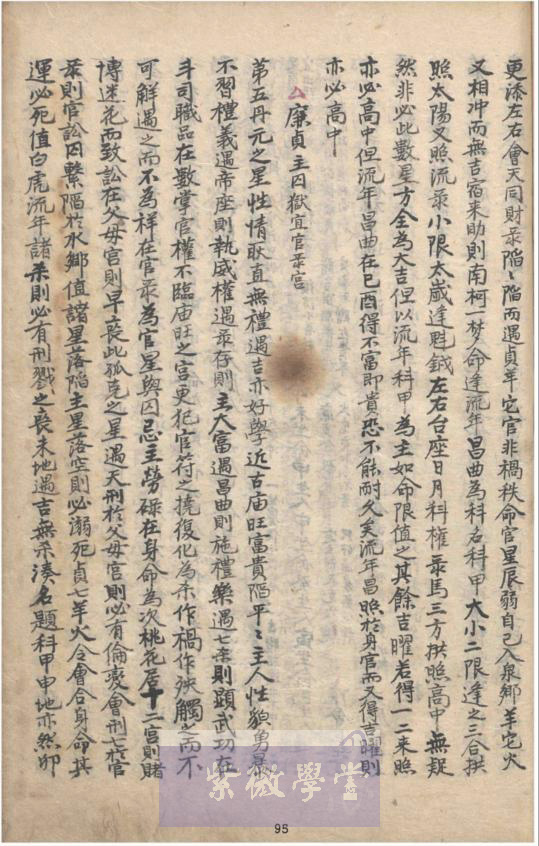 更添左右會天同財彔陷〻陷而遇貞羊它官非禍秩命官星辰弱自己入泉鄉羊它火
又相冲而無吉宿来助則南柯一梦命逢流年昌曲為科名科甲大小二限逢之三合拱
照太陽又照流彔小限太歲逢魁鉞左右台座日月科權彔馬三方拱照高中無疑
然非必此數星方全為大吉但以流年科甲為主如命限值之其餘吉曜若得一二来照
亦必高中但流年昌曲在巳酉得不富即貴恐不能耐久矣流年昌照於身官而又得吉曜則
亦必高中
厶廉貞主囚獄宜官彔宮
第五丹元之星性情耿直無禮遇吉亦好學近古庙旺富貴陷平〻主人性貌勇暴
不習禮義遇帝座則執威權遇彔存則主大富遇昌曲則施禮樂遇七杀則顕武功在
斗司職品在數掌官權不臨庙旺之宮更犯官符之撓復化為杀作禍作殃觸之而不
可觧遇之而不為祥在官彔為官星與囚忌主勞碌在身命為次桃花居十二宮則賭
博迷花而致訟在父母宮則早喪此孤克之星遇天刑於父母宮則必有倫變會刑杀官
彔則官訟囚繫陷於水鄉值諸星落陷主星落空則必溺死貞七羊火令會合身命其
運必死值白虎流年諸杀則必有刑戮之喪未地遇吉無杀湊名題科甲申地亦然卯
紫微學堂
95